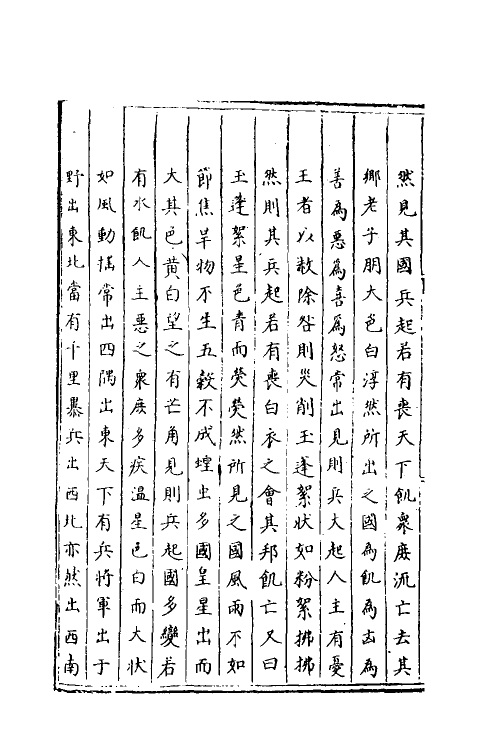 然見其國兵起若有喪天下飢衆庶流亡去其
鄉老子朋大色白淳然所出之國為飢為凶為
善為惡為喜為怒常出見則兵大起人主有憂
王者以赦除咎則災削王蓬絮状如粉絮拂拂
然則其兵起若有喪白衣之會其邦飢亡又曰
王蓬絮星色青而熒熒然所見之國風雨不如
節焦旱物不生五穀不成蝗虫多國皇星出而
大其色黄白望之有芒角見則兵起國多變若
有水飢人主惡之衆庶多疾温星色白而大状
如風動摇常出四隅出東天下有兵將軍出于
野出東北當有千里暴兵出西北亦然出西南